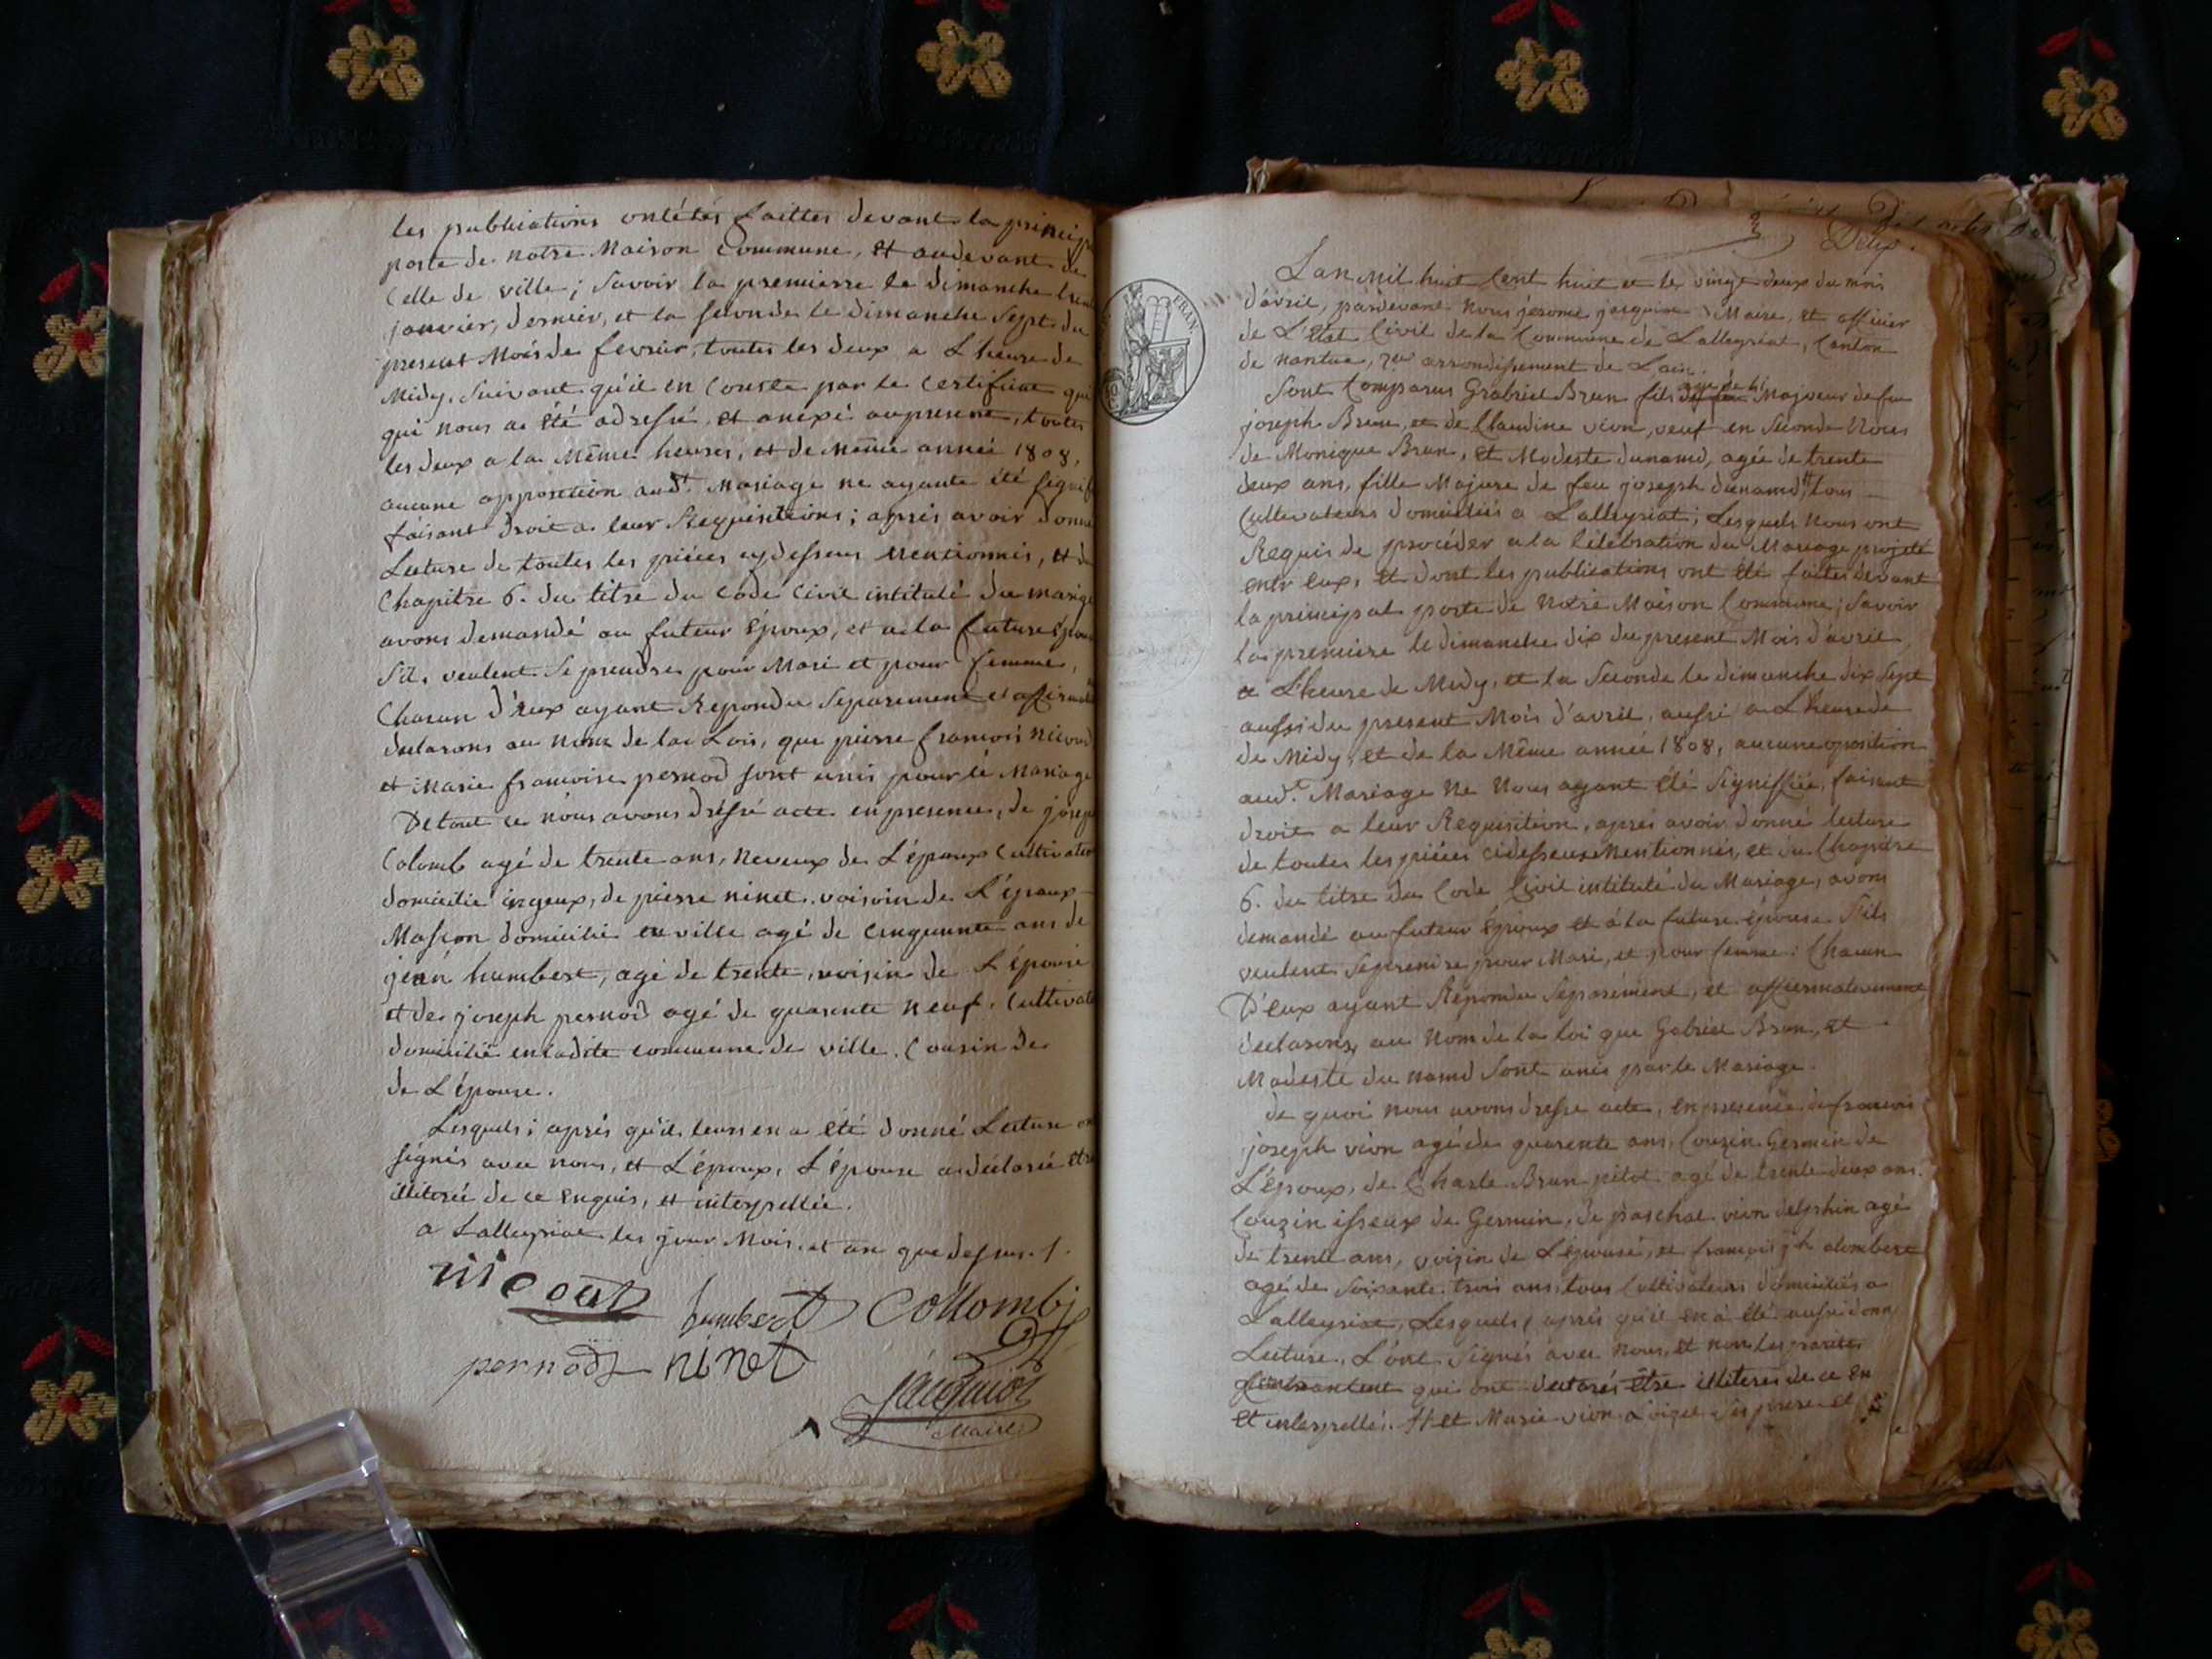 les publications ont étés faittes devant la princip
porte de notre Maison Commune, et audevant de
Celle de ville; Savoir la premierre le dimanche
janvier, dernier, et la seconde le dimanche Sept du
present Mois de fevrier, toutes les deux a L'heure de
Midy. Suivant qu'il en Conste par le Certificat qui
qui nous a été adressé, et anexé au present, toutes
les deux a la Même heures, et de même année 1808,
aucune opposition aud.t Mariage ne ayante été signif
faisant droit a leur Requisitions; aprés avoir donné
Lecture de toutes les piéces cydessus Mentionnés, et du
Chapitre 6. du titre du Code Civil intitulé du mariage
avons demandé au futeur Époux, et a la future Épou
S'il, veulent Se prendre pour Mari et pour femme,
Chacun d'Eux ayant Repondu Separement et affirmat
declarons au Nom de la Lois, que pierre francois nicoud
et Marie francoise pernod sont unis pour le Mariage
De tout ce nous avons dressé acte en presence, de joseph
Colomb agé de trente ans, Neveux de L'époux Cultivateur
domicilié ingeux, de pierre ninet, voisin de L'époux
Masson domicilié en ville agé de Cinquante ans de
jean humbert, agé de trente, voisin de L'épouse
et de joseph pernod agé de quarente neuf, Cultivate
domicilié en ladite commune de ville. Cousin de
de L'épouse.
Lesquels; aprés qu'il leurs en a été donné Lecture on
signés avec nous, et L'époux, L'épouse a declarée etre
illiterée de ce Enquis, et interpellée.
a Lalleyriat les jour Mois et an que dessus. /.
nicout humbert Collomb
pernod ninet
Jacquiot
Maire
Deux.
L'an Mil huit Cent huit et le vingt deux du mois
d'avril, pardevant Nous jérome jacquiot Maire, et officier
de L'Etat Civil de la Commune de Lalleyriat, Canton
de nantua, arrondissement de L'ain.
Sont Comparus Grabriel Brun fils agé de Majeur de feu
joseph Brun, et de Claudine vion, veuf en Seconde Noces
de Monique Brun, et Modeste dunand, agée de trente
deux ans, fille Majure de feu joseph dunand, tous
Cultivateurs domiciliés a Lalleyriat; Lesquels Nous ont
Requis de proceder a la Célébration du Mariage projeté
entr eux, et dont les publications ont été faites devant
la principal porte de Notre Maison Commune; Savoir
la premiere le dimanche dix du present Mois d'avril,
a L'heure de Midy, et la Seconde le dimanche dix Sept
aussi du present Mois d'avril, aussi a L'heure de
de Midy, et de la Même année 1808, aucune oposition
aud.t Mariage Ne Nous ayant été Signiffiée, faisant
droit a leur Requisition, aprés avoir donné lecture
de toutes les piéces cidesseus Mentionnés, et du Chapitre
6. du titre du Code Civil intitulé du Mariage, avons
demandé au futeur Époux et á la future épouse S'ils
veulent Se prendre pour Mari, et pour femme: Chacun
D'Eux ayant Repondu Séparément, et affirmativement
declarons, au Nom de la loi que Gabriel Brun, et
Modeste du nand Sont unis par le Mariage.
de quoi nous avons dressé acte, en presence de francois
joseph vion agé de quarente ans, Couzin Germin de
L'époux, de Charle Brun pitot agé de trente deux ans.
Couzin isseux de Germin, de paschal vion delphin agé
de trente ans, voizin de L'épouse, et francois jh alombert
agé de Soixante trois ans, tous Cultivateurs domiciliés a
Lalleyriat, Lesquels, aprés qu'il en a été aussi donn
Lecture, L'ont Signés avec Nous, et non les parties
Contractent qui ont declarés être illiterés de ce en
et interpellés. # et Marie vion